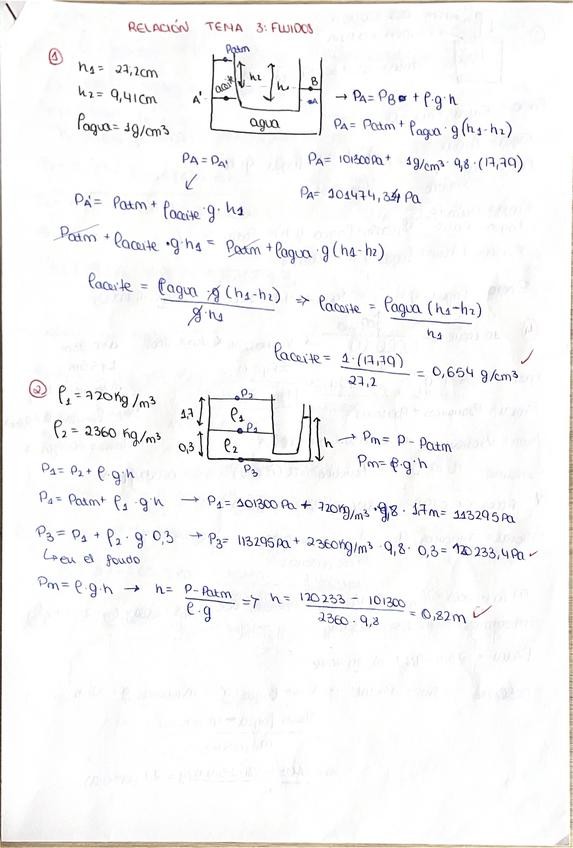 RELACIÓN TEMA 3: FLUIDOS
① h1 = 27,2cm
h2 = 9,41cm
ρagua = 1g/cm³
Patm
aceite
h2
h
B
A'
A
agua
→ PA = PB + ρ·g·h
PA = Patm + ρagua · g (h1-h2)
PA = PA'
PA = 101300Pa + 1g/cm³ · 9,8 · (17,79)
PA = 101474,34 Pa
PA' = Patm + ρaceite · g · h1
Patm + ρaceite · g · h1 = Patm + ρagua · g (h1-h2)
ρaceite = ρagua · g (h1-h2) / g · h1 ⇒ ρaceite = ρagua (h1-h2) / h1
ρaceite = 1 · (17,79) / 27,2 = 0,654 g/cm³ ✓
② ρ1 = 720 Kg/m³
ρ2 = 2360 Kg/m³
P2
1,7
ρ1
P1
0,3
ρ2
P3
h
→ Pm = P - Patm
Pm = ρ·g·h
P1 = P2 + ρ·g·h
P1 = Patm + ρ1 · g · h → P1 = 101300 Pa + 720Kg/m³ · 9,8 · 1,7m = 113295 Pa
P3 = P1 + ρ2 · g · 0,3 → P3 = 113295Pa + 2360Kg/m³ · 9,8 · 0,3 = 120233,4Pa ✓
↳ en el fondo
Pm = ρ·g·h → h = P-Patm / ρ·g ⇒ h = 120233 - 101300 / 2360 · 9,8 = 0,82m ✓